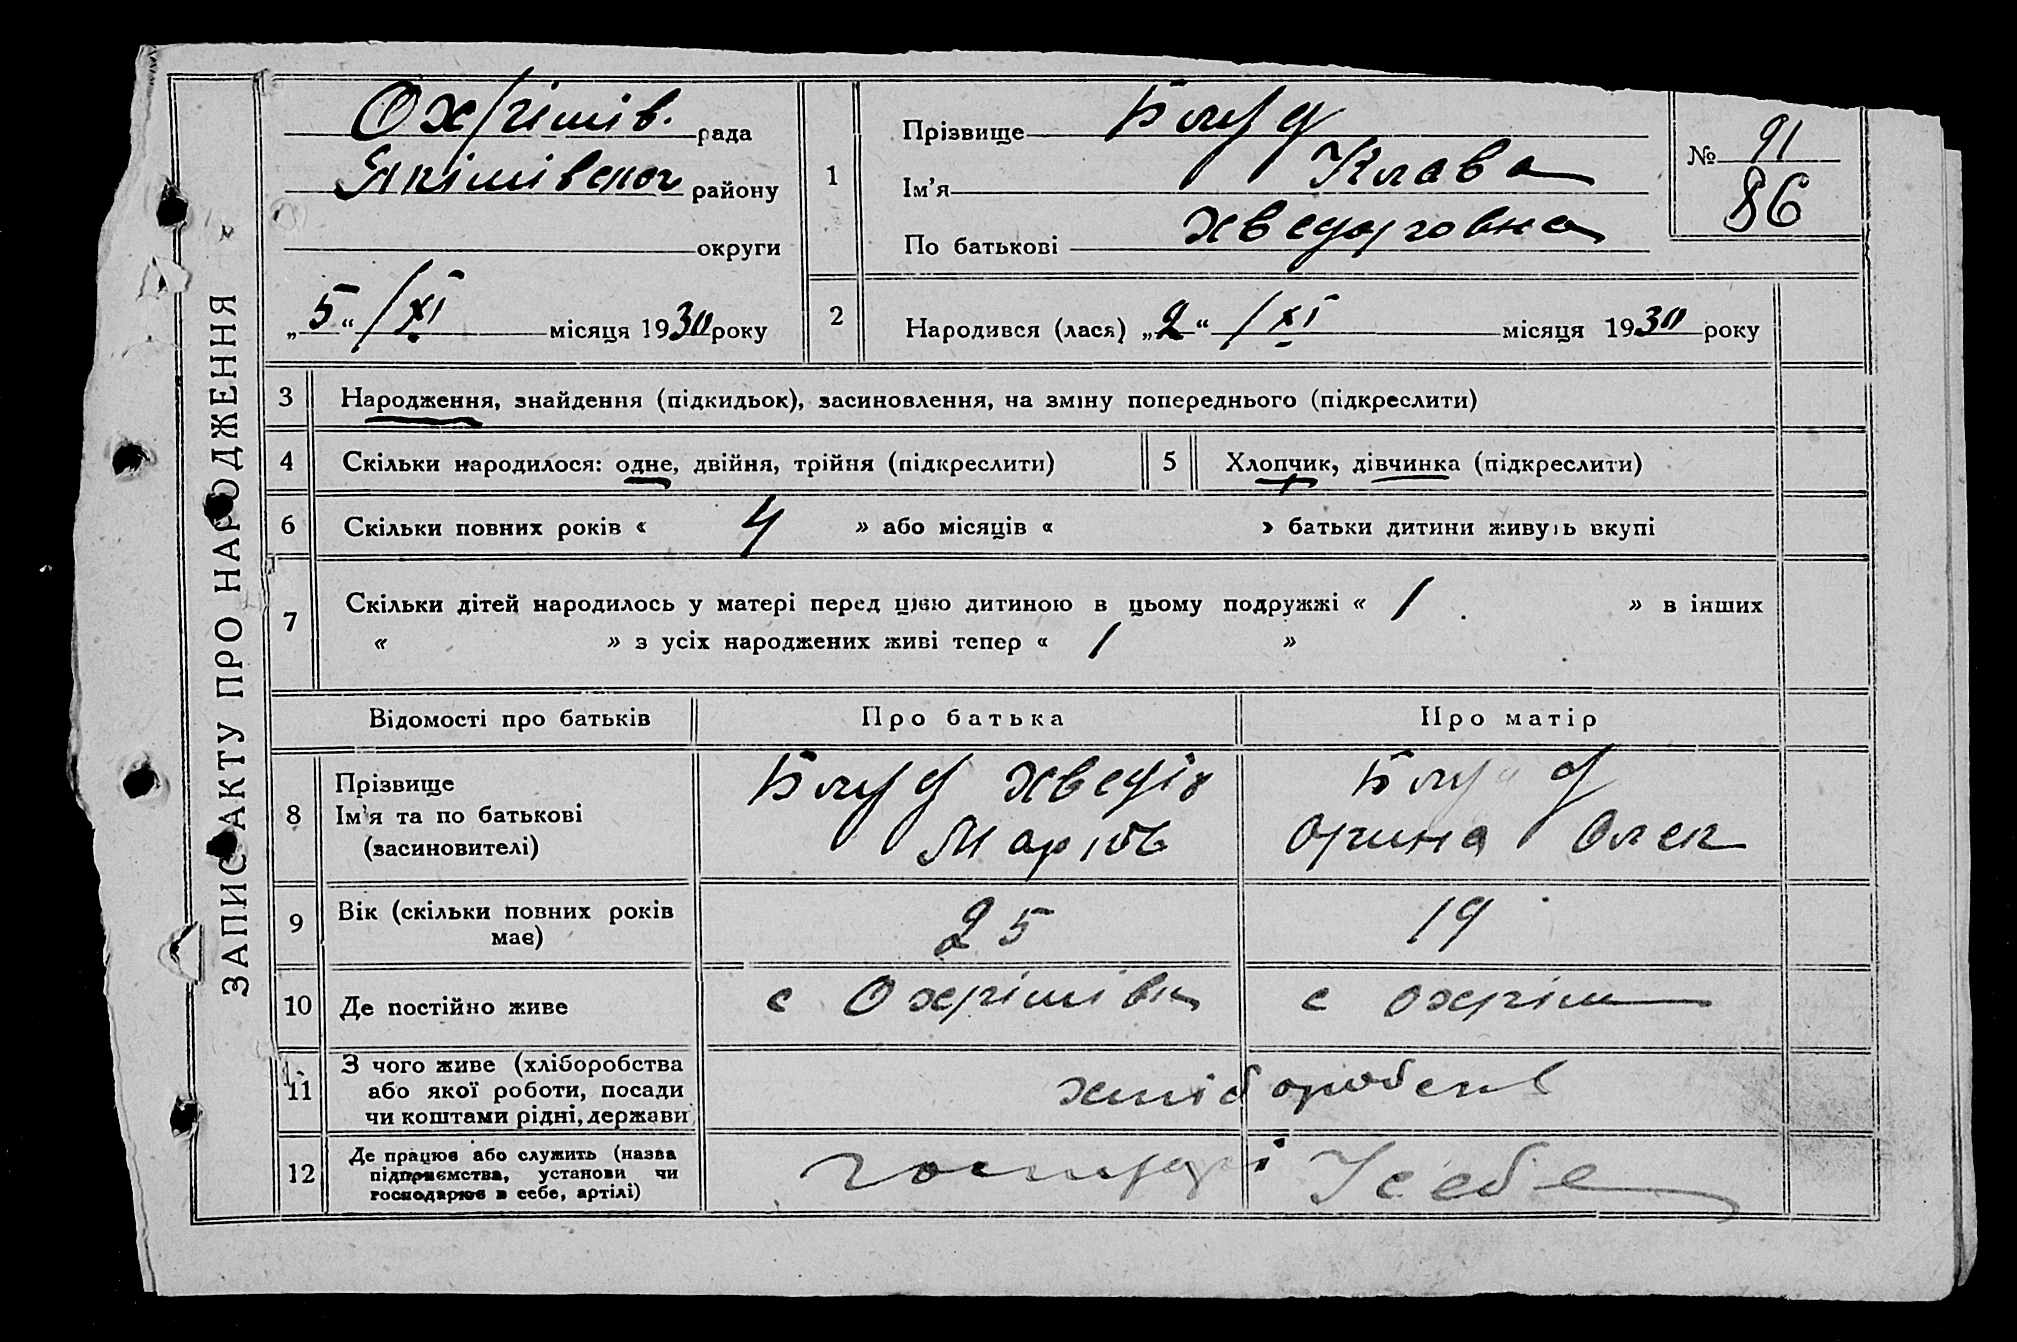 ЗАПИС АКТУ ПРО НАРОДЖЕННЯ
Охрімів. рада
Якімівськ району
округи
„5“ /XI місяця 1930 року
1
Прізвище Блуд
Ім’я Клава
По батькові Хведоровна
№ 91
86
2
Народився (лася) „2“ /XI місяця 1930 року
3 Народження, знайдення (підкидьок), засиновлення, на зміну попереднього (підкреслити)
4 Скільки народилося: одне, двійня, трійня (підкреслити)
5 Хлопчик, дівчинка (підкреслити)
6 Скільки повних років « 4 » або місяців « » батьки дитини живуть вкупі
7 Скільки дітей народилось у матері перед цією дитиною в цьому подружжі « 1 » в інших
« » з усіх народжених живі тепер « 1 »
Відомості про батьків
Про батька
Про матір
8
Прізвище
Ім’я та по батькові
(засиновителі)
Блуд Хведір
Марків
Блуд
Орина Олек
9
Вік (скільки повних років
має)
25
19
10 Де постійно живе
с Охрімівка
с Охрім
11
З чого живе (хліборобства
або якої роботи, посади
чи коштами рідні, держави
хліборобств
12
Де працює або служить (назва
підприємства, установи чи
господарює в себе, артілі)
У себе